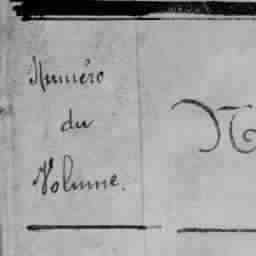 Numéro
du
Volume.